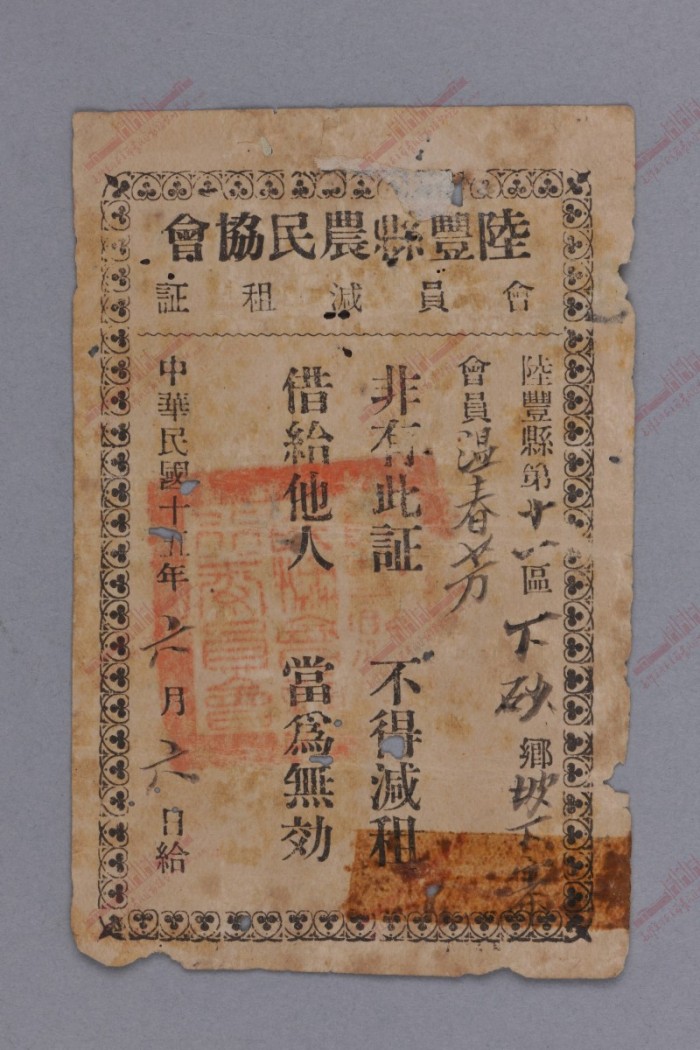 陸豐縣農民協會
會員減租証
陸豐縣第十八區下砂鄉坡下寮
會員温春芳
非有此証 不得減租
借給他人 當爲無効
中華民國十五年六月六日給